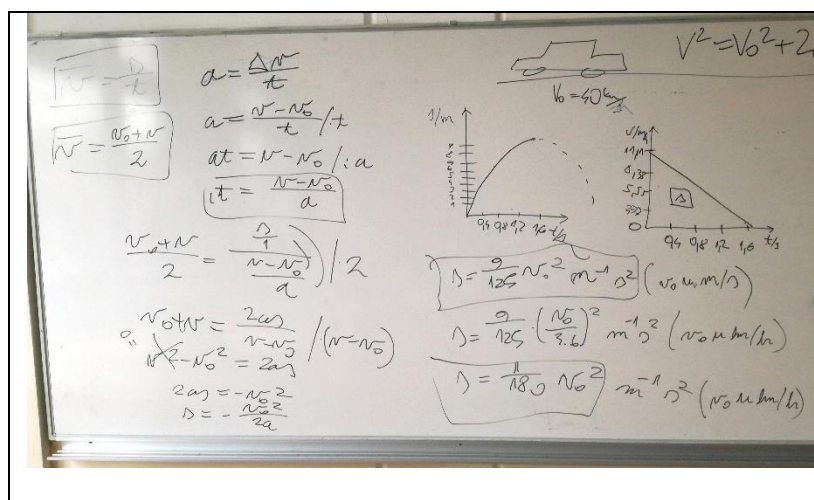 v̅ = s/t
v̅ = (v₀+v)/2
a = Δv/t
a = (v-v₀)/t /·t
at = v-v₀ /:a
t = (v-v₀)/a
(v₀+v)/2 = (s/1)/((v-v₀)/a) /·2
v₀+v = 2as/(v-v₀) /·(v-v₀)
v²-v₀² = 2as
2as = -v₀²
s = -v₀²/2a
V² = V₀² + 2
V₀ = 40 km/h
s/m
0,4 0,8 1,2 1,6 t/s
11,11
5,55
0
s
0,4 0,8 1,2 1,6 t/s
s = 9/125 v₀² m⁻¹ s² (v₀ u m/s)
s = 9/125 · (v₀/3.6)² m⁻¹ s² (v₀ u km/h)
s = 1/180 v₀² m⁻¹ s² (v₀ u km/h)